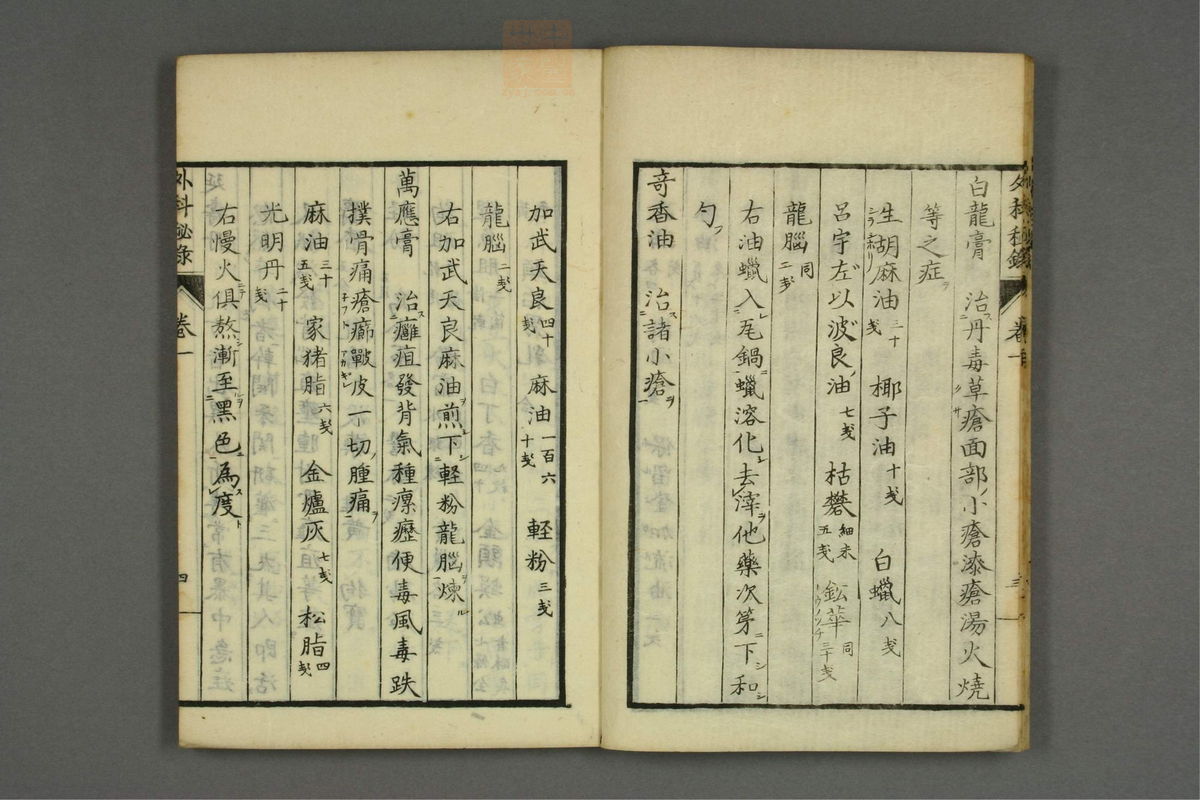 白龍膏 治丹毒草瘡面部小瘡漆瘡湯火燒
等之症
生胡麻油 三十戔 椰子油 十戔 白蠟 八戔
呂宇左以波良油 七戔 枯礬 細末五戔 鈆華 同三十戔
龍腦 同二戔
右油蠟入瓦鍋蠟溶化去滓他藥次第下和
勻
奇香油 治諸小瘡
加武天良 四十戔 麻油 一百六十戔 輕粉 三戔
龍腦 二戔
右加武天良麻油煎下輕粉龍腦煉
萬應膏 治癰疽發背氣種瘰癧便毒風毒跌
撲骨痛瘡癤皸皮一切腫痛
麻油 三十五戔 家猪脂 六戔 金爐灰 七戔 松脂 四戔
光明丹 二十戔
右慢火俱熬漸至黑色為度
外科秘录
卷一
四